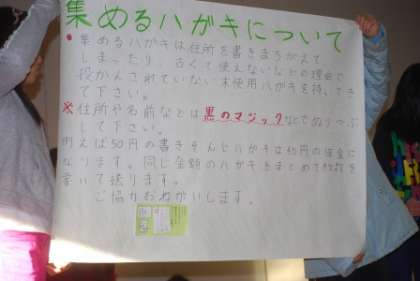 集めるハガキについて
• 集めるハガキは住所を書きまちがえて
しまったり、古くて使えないなどの理由で
投かんされていない未使用ハガキを持ってき
て下さい。
※住所や名前などは黒のマジックなどでぬりつぶ
して下さい。
例えば50円の書きそんじハガキは45円の募金に
なります。同じ金額のハガキをまとめて枚数を
書いて送ります。
ご協力おねがいします。